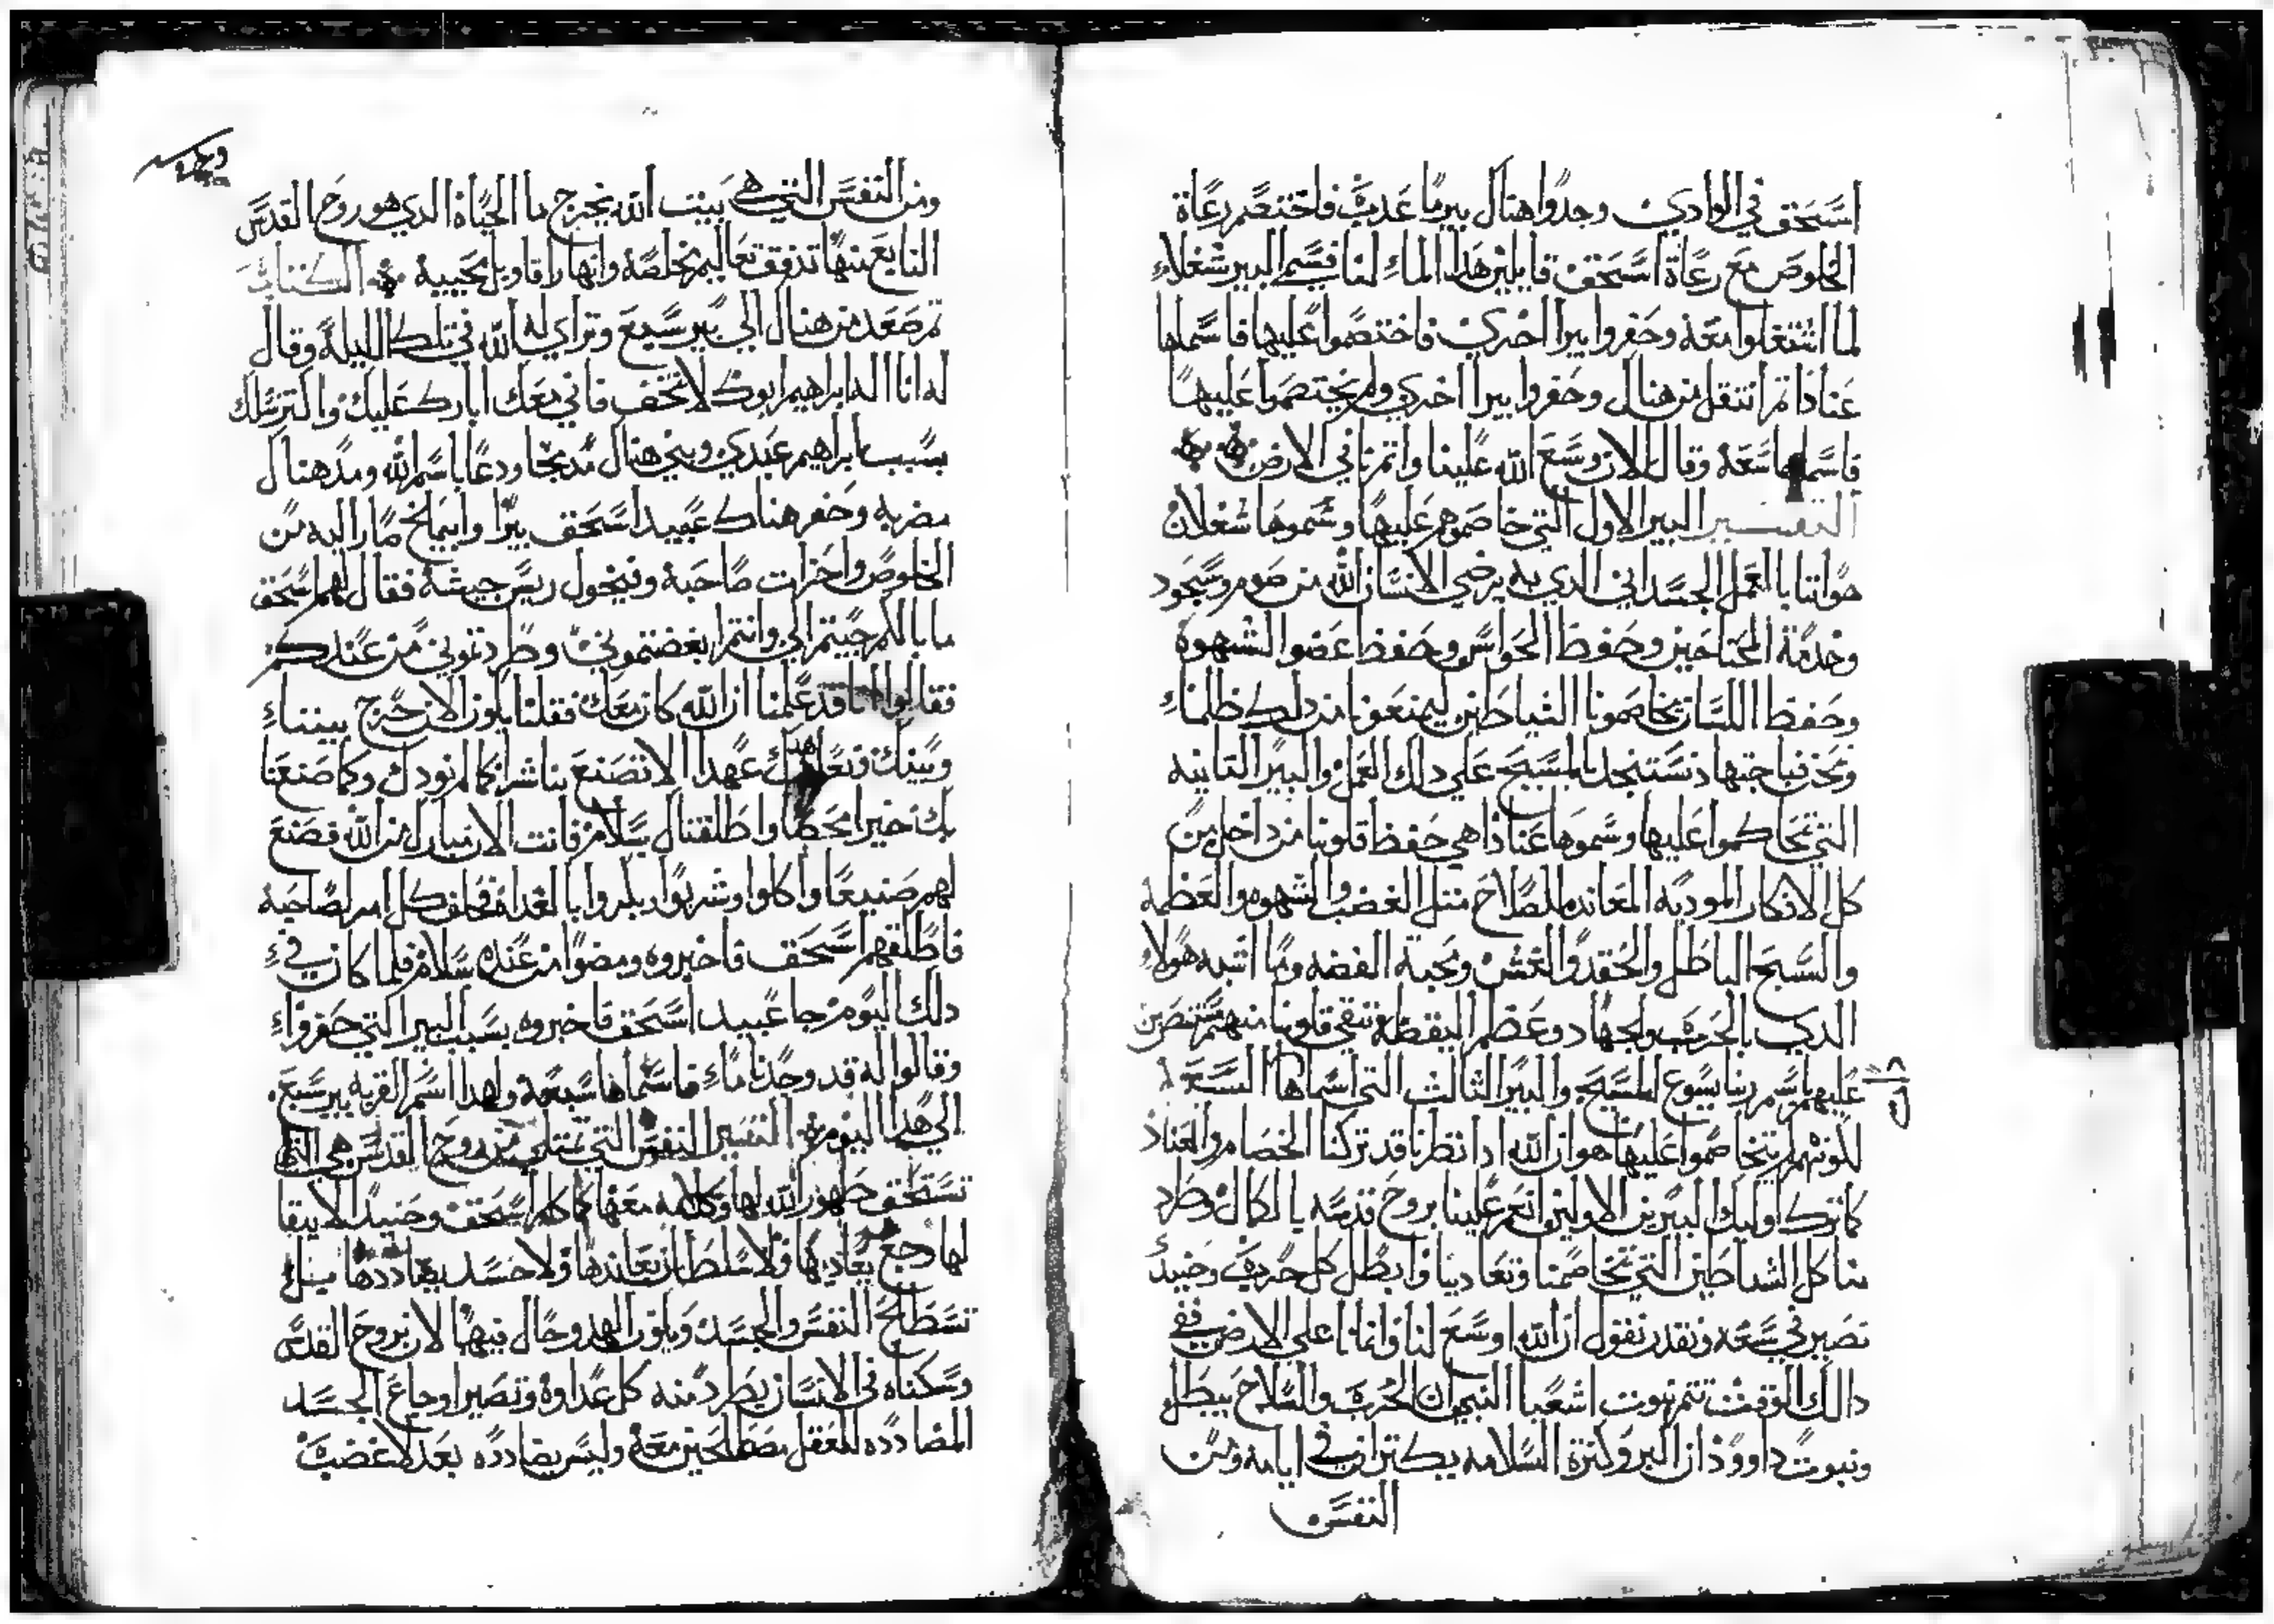 اسحق في الوادي وجدوا هناك بير ما عدب فاختصم رعاة
الخلوص مع رعاة اسحق قايلين هدا الماء لنا فسمي البير شغلاء
لما اشتغلوا معه وحفروا بيرا اخري فاختصموا عليها فاسماها
عنادا تم انتقل من هناك وحفروا بيرا اخري ولم يختصموا عليها
فاسماها سعة وقال الان وسع الله علينا واتمرنا في الارض
التفسير البير الاول التي خاصموهم عليها وسموها شغلان
حواتنا بالعمل الجسداني الدي به يرضي الانسان الله من صوم وسجود
وخدمة المحتاجين وحفظ الحواس وحفظ عضوا الشهوه
وحفظ اللسان يخاصمونا الشياطين ليمنعونا من دلك ظلماء
ونحن نستنجد بالمسيح علي دلك العمل والبير التانيه
التي تحاكموا عليها وسموها عنادا هي حفظ قلوبنا من داخل من
كل الافكار الموديه المعانده للصلاح متل الغضب والشهوه والعظمة
والسبح الباطل والحقد والغش ومحبة الفضه وما اشبه هولاء
الدي بالحرب والجهاد وعظم اليقظه تنقي قلوبنا منهم منتصرين
عليهم باسم ربنا يسوع المسيح والبير الثالث التي اسماها السعة
لكونهم لم يتخاصموا عليها هو ان الله ادا نظرنا قد تركنا الخصام والعناد
كما ترك اوليك البيرين الاولين انعم علينا بروح قدسه بالكمال وطرد
منا كل الشياطين التي تخاصمنا وتعادينا وابطل كل حرب وحينيد
نصير في سعه ونقدر نقول ان الله اوسع لنا وانمانا علي الارض ففي
دالك الوقت تتم نبوت اشعيا النبي ان الحرب والسلاح يبطل
ونبوت داوود ان البر وكترة السلامه يكتران في ايامه ومن
النفس
ومن النفس التي هي بيت الله يخرج ما الحياة الدي هو روح القدس
النابع منها تدفق تعاليم مخلصة وانهار اقاويل محييه الكتاب
تم صعد من هناك الي بير سبع وتراي له الله في تلك الليلة وقال
له انا اله ابراهيم ابوك لا تخف فاني معك ابارك عليك واكتر نسلك
بسبب ابراهيم عبدي وبني هناك مدبحا ودعا باسم الله ومد هناك
مضربه وحفر هناك عبيد اسحق بيرا وابيمالخ صار اليه من
الخلوص واحزات صاحبة وفيخول ريس جيشة فقال لهم اسحق
ما بالكم جيتم الي وانتم ابغضتموني وطردتموني من عندكم
فقالوا اننا قد علمنا ان الله كان معك فقلنا يكون الان حرج بيننا
وبينك ونعاهدك عهدا الا تصنع بنا شرا كما لم نودك وكما صنعنا
بك خيرا محضا واطلقناك بسلام فانت الان مبارك من الله فصنع
لهم صنيعا واكلوا وشربوا وبكروا بالغداه فحلف كل امر لصاحبه
فاطلقهم اسحق فاخبروه ومضوا من عنده بسلام فلما كان في
دلك اليوم جا عبيد اسحق فاخبروه بسبب البير التي حفروا
وقالوا له قد وجدنا ماء فاسماها سبعة ولهدا اسم القريه بير سبع
الي هدا اليوم التفسير النفس التي تمتلي من روح القدس هي التي
تستحق ظهور الله لها وكلامه معها كما كلم اسحق وحينيد لا يبقا
لها وجع يعاديها ولا سلطان يعاندها ولا حسد يضاددها حينيد
تسطلح النفس والجسد ويكون الهدو حال فيهما لان بروح القدس
وسكناه في الانسان يطرد منه كل عداوة وتصير اوجاع الجسد
المضادده للعقل مصطلحين معه وليس يضادده بعد لا غضب